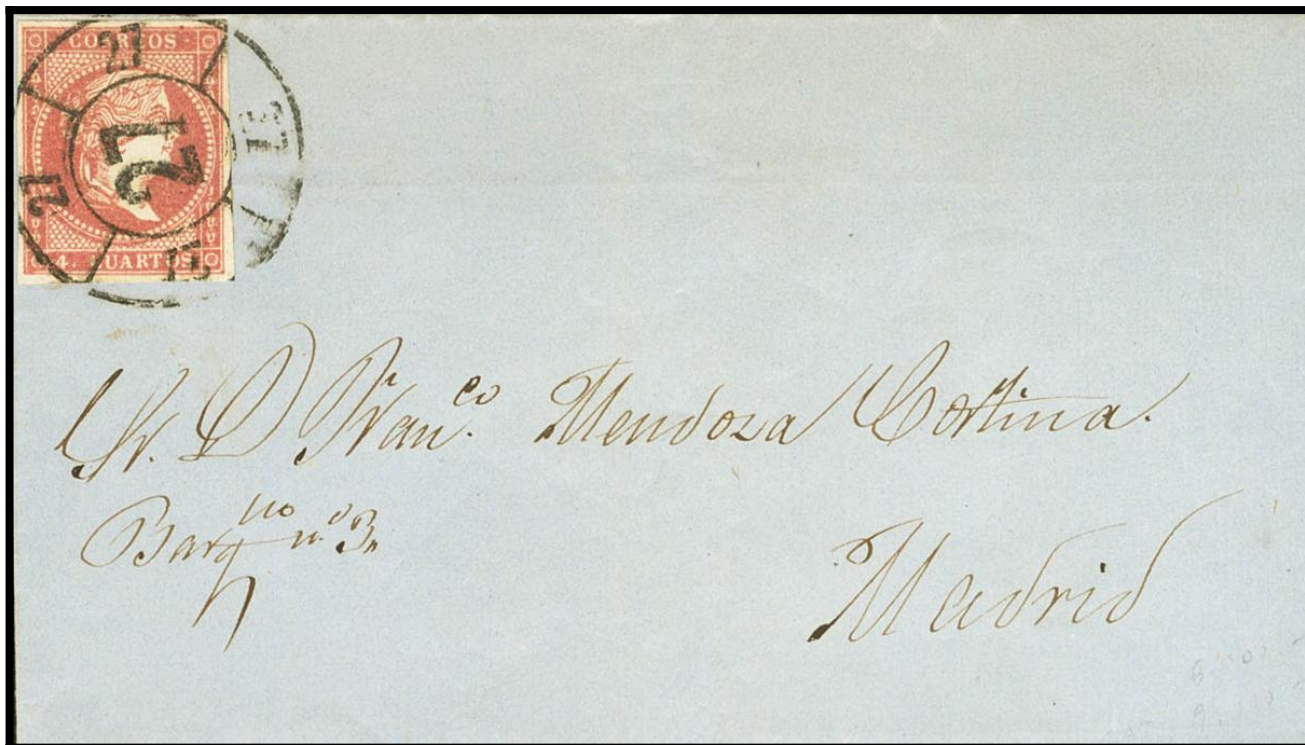 CORREOS
27 27 27 27 27
4. CUARTOS
Sr. D Fran.co Mendoza Cortina.
Barq.llo n.o 3,,
Madrid